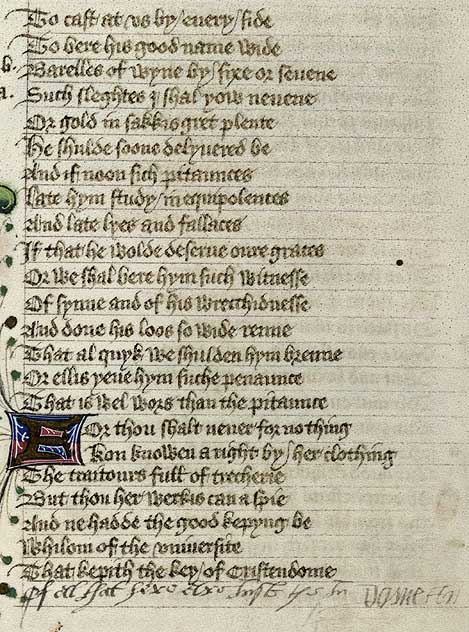 To cast at vs by / euery / side
To bere his good name wide
b. Barelles of wyne by / sixe or seuene
a. Such sleghtes I shal yow neuene
Or gold in sakkis gret plente
He shulde soone delyuered be
And if noon sich pitaunces
Late hym study / in equipolences
And late lyes and fallaces
If that he wolde deserue oure graces
Or we shal bere hym such witnesse
Of synne and of his wrecchidnesse
And done his loos so wide renne
That al quyk we shulden hym brenne
Or ellis yeue hym suche penaunce
That is wel wors than the pitaunce
For thou shalt neuer for no thing
Kon knowen a right by / her clothing
The traitours full of trecherie
But thou her werkis can a spie
And ne hadde the good kepyng be
Whilom of the vniuersite
That kepith the key / of Cristendome
Of al that here are iust